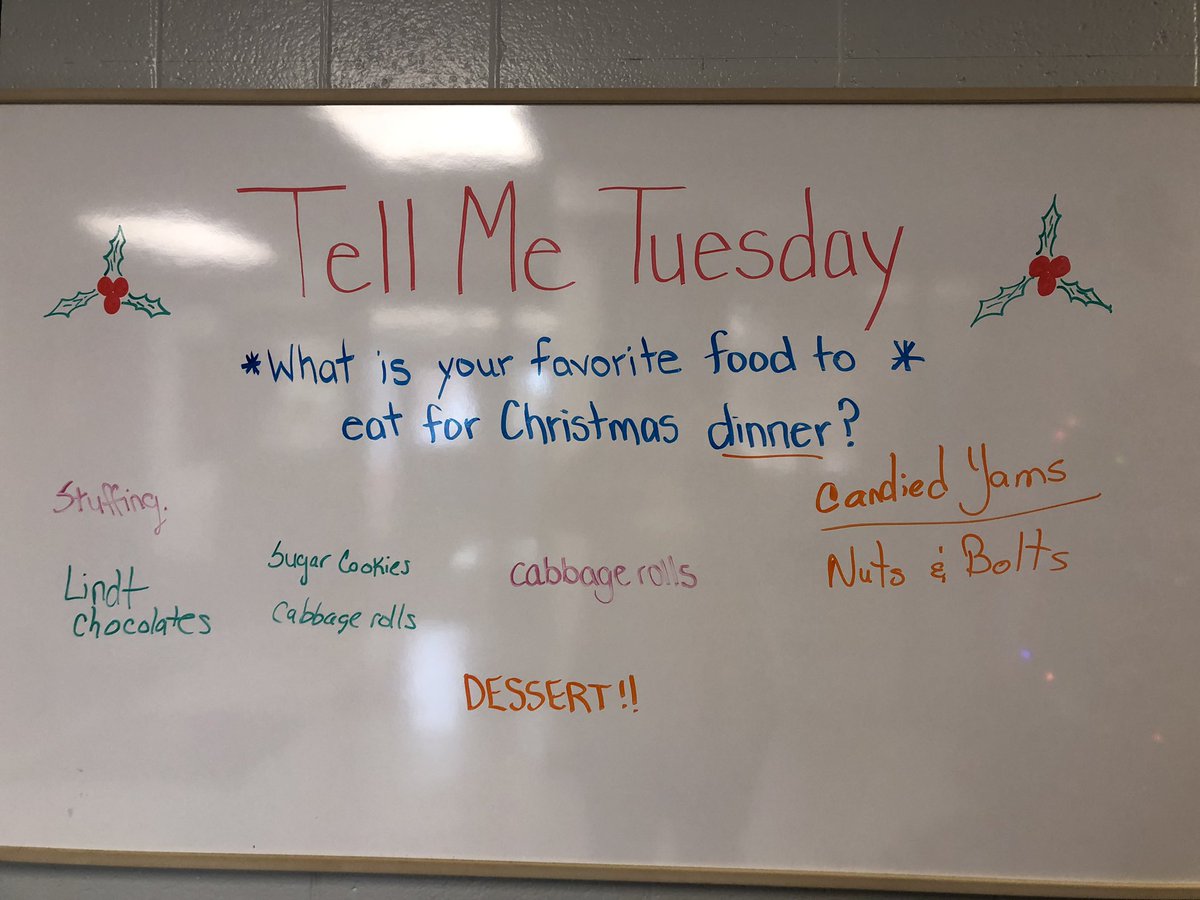 Tell Me Tuesday
*What is your favorite food to *
eat for Christmas dinner?
Stuffing.
Lindt
chocolates
Sugar Cookies
Cabbage rolls
cabbage rolls
Candied Yams
Nuts & Bolts
DESSERT!!